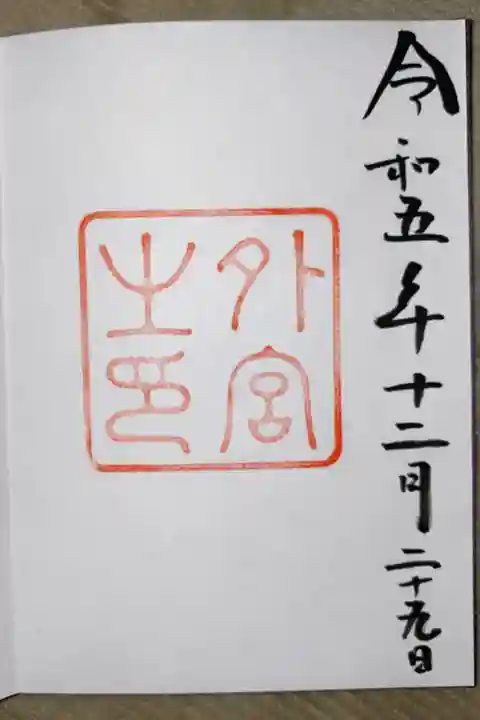 令和五年十二月二十九日
外宮
之印